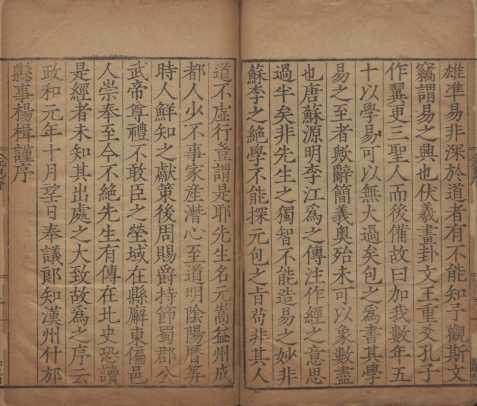 雄准易非深於道者有不能知予觀斯文
竊謂易之興也伏羲畫卦文王重爻孔子
作翼更三聖人而後備故曰加我數年五
十以學易可以無大過矣包之為書其學
易之至者歟辭簡義奧殆未可以象數盡
也唐蘇源明李江為之傳注作經之意思
過半矣非先生之獨智不能造易之妙非
蘇李之絕學不能探元包之旨苟非其人
道不虛行豈謂是耶先生名元嵩益州成
都人少不事家產潛心至道明陰陽曆筭
時人鮮知之獻策後周賜爵持節蜀郡公
武帝尊禮不敢臣之塋域在縣廨東偏邑
人崇奉至今不絕先生有傳在北史恐讀
是經者未知其出處之大致故為之序云
政和元年十月望日奉議郎知漢州什邡
縣事楊楫謹序